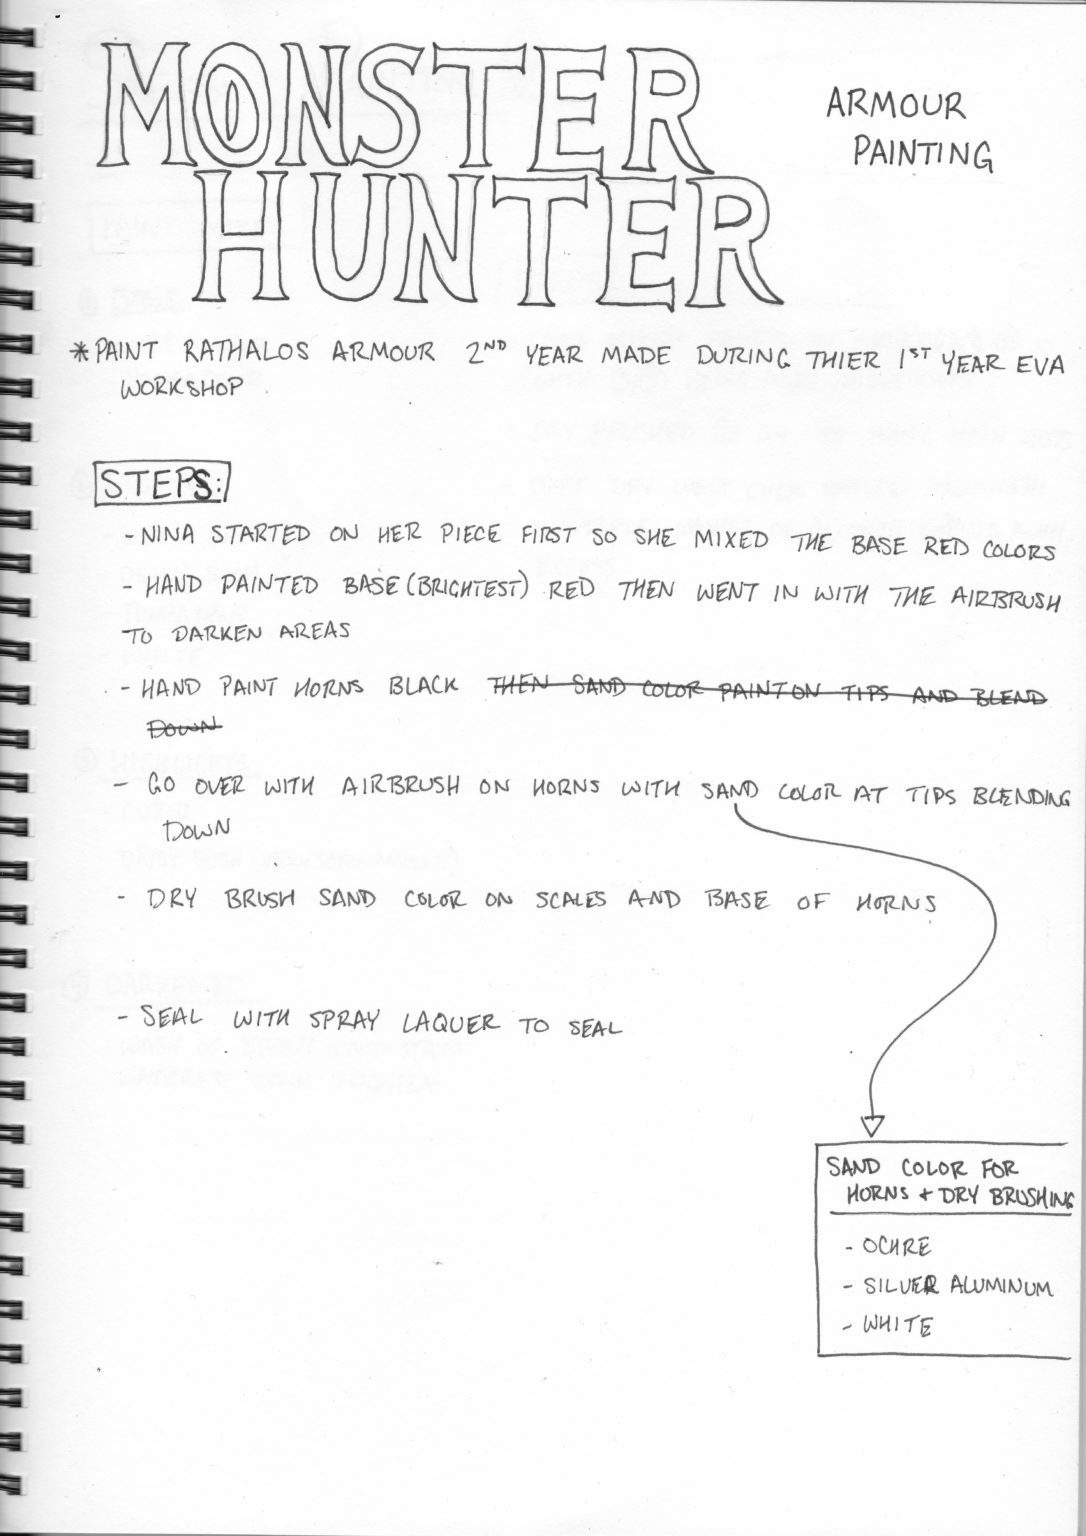 MONSTER
HUNTER
ARMOUR
PAINTING
*PAINT RATHALOS ARMOUR 2ND YEAR MADE DURING THIER 1ST YEAR EVA
WORKSHOP.
STEPS:
- NINA STARTED ON HER PIECE FIRST SO SHE MIXED THE BASE RED COLORS
- HAND PAINTED BASE (BRIGHTEST) RED THEN WENT IN WITH THE AIRBRUSH
TO DARKEN AREAS
- HAND PAINT HORNS BLACK THEN SAND COLOR PAINT ON TIPS AND BLEND
DOWN
- GO OVER WITH AIRBRUSH ON HORNS WITH SAND COLOR AT TIPS BLENDING
DOWN
- DRY BRUSH SAND COLOR ON SCALES AND BASE OF HORNS
- SEAL WITH SPRAY LAQUER TO SEAL
SAND COLOR FOR
HORNS + DRY BRUSHING
- OCHRE
- SILVER ALUMINUM
- WHITE